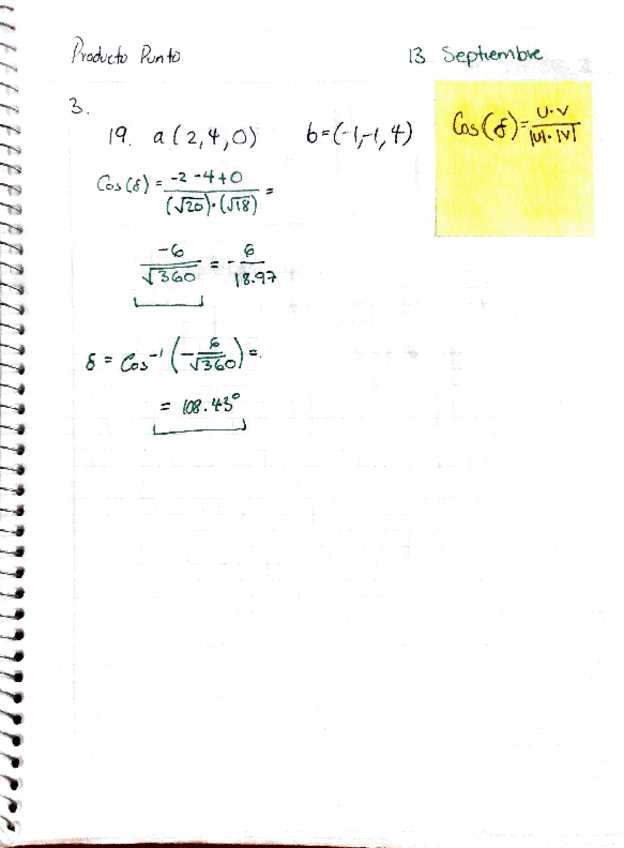 Producto Punto
13 Septiembre
3.
19. a(2,4,0) b=(-1,-1,4)
Cos(δ)=U·V/|U|·|V|
Cos(δ)=-2-4+0/(√20)·(√18)=
-6/√360 = -6/18.97
δ = Cos⁻¹(-6/√360)=
= 108.43°